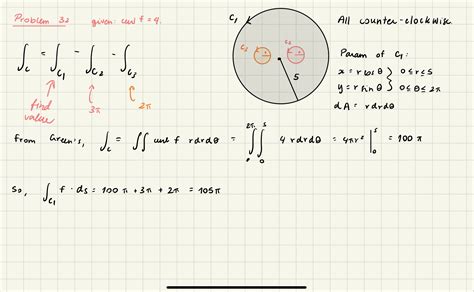 Problem 32 given: curl f = 4.
∫_C = ∫_C₁ - ∫_C₂ - ∫_C₃
find value
3π
2π
C₁
C₂ C₃
5
All counter-clockwise.
Param of C₁:
x = r cos θ } 0 ≤ r ≤ 5
y = r sin θ } 0 ≤ θ ≤ 2π
dA = r dr dθ
From Green's, ∫_C = ∬ curl f r dr dθ = ∫₀^2π ∫₀^5 4 r dr dθ = 4πr² |₀^5 = 100 π
So, ∫_C₁ f · ds = 100 π + 3π + 2π = 105π